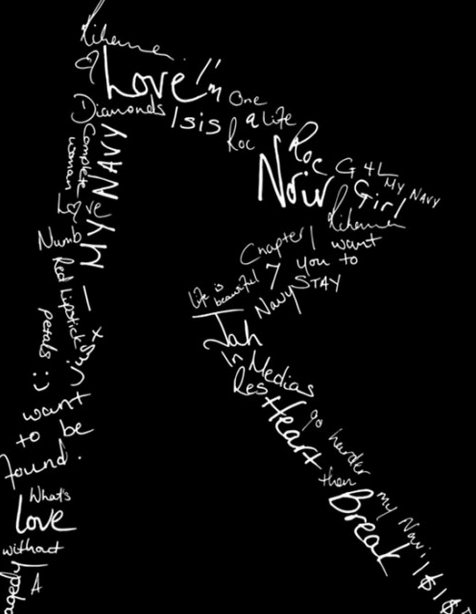 Rihanna
Love!!
Diamonds
'n One
Isis a Life
Roc
Roc
Now
G4L
MY NAVY
Girl
Rihanna
I want
you to
STAY
Chapter
7
Life is
beautiful
Navy
Jah
In Medias
Res
Heart
go harder
then
Break
my Navi
1$1$
Complete
woman
MY NAVY
Love
Numb
Red Lipstick
petals :)
I want
to be
found.
What's
Love
without
A
agedy